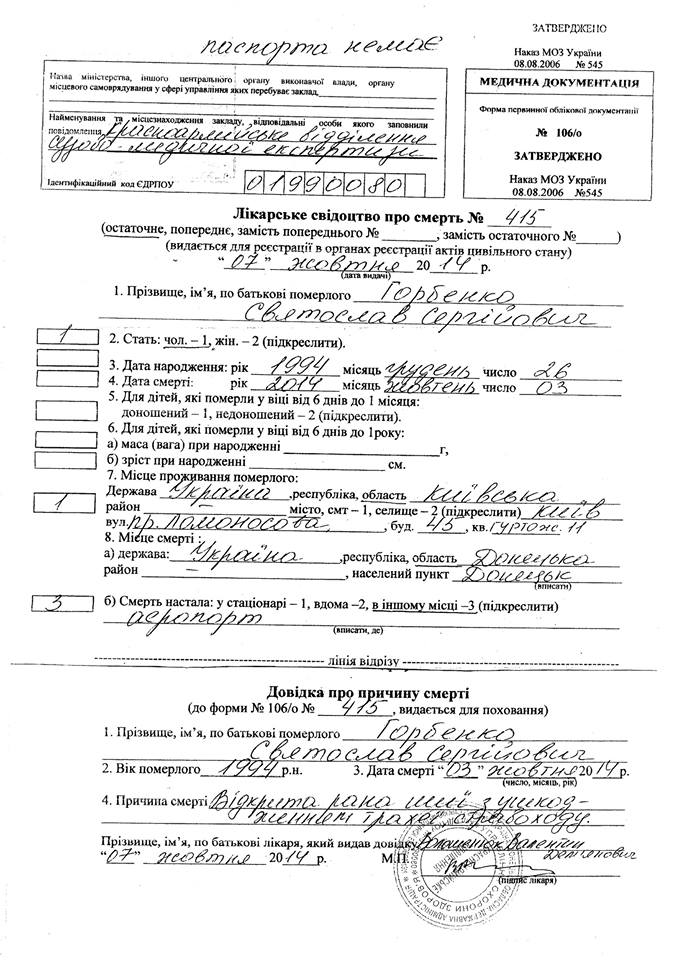 ЗАТВЕРДЖЕНО
паспорта немає
Наказ МОЗ України
08.08.2006 № 545
Назва міністерства, іншого центрального органу виконавчої влади, органу
місцевого самоврядування у сфері управління яких перебуває заклад
МЕДИЧНА ДОКУМЕНТАЦІЯ
Форма первинної облікової документації
№ 106/о
ЗАТВЕРДЖЕНО
Наказ МОЗ України
08.08.2006 №545
Найменування та місцезнаходження закладу, відповідальні особи якого заповнили
повідомлення Красноармійське відділення
судово-медичної експертизи
Ідентифікаційний код ЄДРПОУ 01990080
Лікарське свідоцтво про смерть № 415
(остаточне, попереднє, замість попереднього № ________, замість остаточного №______)
(видається для реєстрації в органах реєстрації актів цивільного стану)
“ 07 ” жовтня 2014 р.
(дата видачі)
1. Прізвище, ім’я, по батькові померлого Горбенко
Святослав Сергійович
1 2. Стать: чол. – 1, жін. – 2 (підкреслити).
3. Дата народження: рік 1994 місяць грудень число 26
4. Дата смерті: рік 2014 місяць жовтень число 03
5. Для дітей, які померли у віці від 6 днів до 1 місяця:
доношений – 1, недоношений – 2 (підкреслити).
6. Для дітей, які померли у віці від 6 днів до 1року:
а) маса (вага) при народженні ________ г,
б) зріст при народженні ________ см.
7. Місце проживання померлого:
Держава Україна ,республіка, область Київська
1 район – місто, смт – 1, селище – 2 (підкреслити) Київ
вул. пр. Ломоносова, , буд. 45 , кв. гуртож. 11
8. Місце смерті :
а) держава: Україна ,республіка, область Донецька
район – , населений пункт Донецьк
(вписати)
3 б) Смерть настала: у стаціонарі – 1, вдома –2, в іншому місці –3 (підкреслити)
аеропорт
(вписати, де)
лінія відрізу
Довідка про причину смерті
(до форми № 106/о № 415 , видається для поховання)
1. Прізвище, ім’я, по батькові померлого Горбенко
Святослав Сергійович
2. Вік померлого 1994 р.н. 3. Дата смерті “ 03 ” жовтня 2014 р.
(число, місяць, рік)
4. Причина смерті Відкрита рана шиї з ушкод-
женням трахеї, стравоходу.
Прізвище, ім’я, по батькові лікаря, який видав довідку Валентин
“ 07 ” жовтня 2014 р. М.П.
(підпис лікаря)